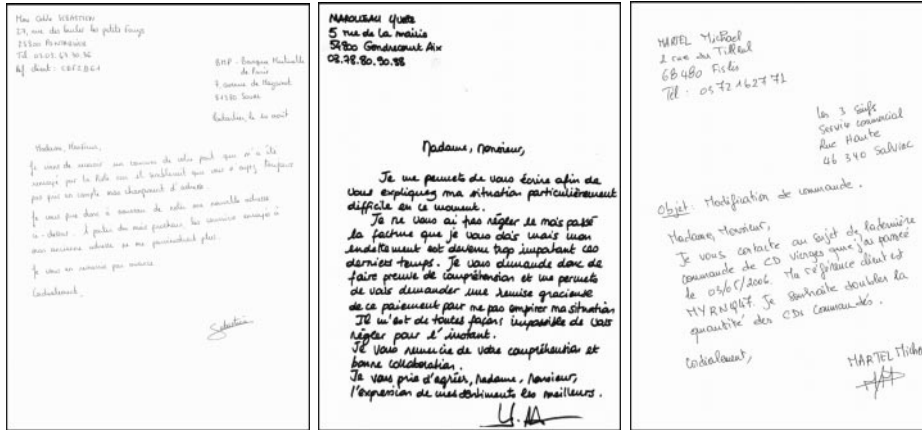 Mme Odile SEBASTIEN
Tél.
Réf client :
BMP - Banque Mutuelle
de Paris
Madame, Monsieur,
Je viens de recevoir un courrier de votre part qui m'a été
pas pris en compte mon changement d'adresse.
Je vous prie donc à nouveau de noter ma nouvelle adresse
ci-dessus. À partir du mois prochain, les courriers envoyés à
mon ancienne adresse ne me parviendront plus.
Je vous en remercie par avance.
Cordialement.
Sebastien
MAROUZEAU Yvette
5 rue de la mairie
54800 Gondrecourt Aix
03.78.80.90.88
Madame, Monsieur,
Je me permets de vous écrire afin de
vous expliquez ma situation particulièrement
difficile en ce moment.
Je ne vous ai pas régler le mois passé
la facture que je vous dois mais mon
endettement est devenu trop important ces
derniers temps. Je vous demande donc de
faire preuve de compréhension et me permets
de vous demander une remise gracieuse
de ce paiement pour ne pas empirer ma situation
Il m'est de toutes façons impossible de vous
régler pour l'instant.
Je vous remercie de votre compréhension et
bonne collaboration.
Je vous prie d'agréer, Madame, Monsieur,
l'expression de mes sentiments les meilleurs.
MARTEL Michael
2 rue du Tilleul
68480 Fislis
Tél : 0372162771
Les 3 Suifs
Service commercial
Rue Haute
46 340 Salviac
Objet : Modification de commande.
Madame, Monsieur,
Je vous contacte au sujet de la dernière
commande de CD vierges que j'ai passée
le 03/05/2006. Ma référence client est
MYRNQ47. Je souhaite doubler la
quantité des CDs commandés.
Codialement,
MARTEL Micha